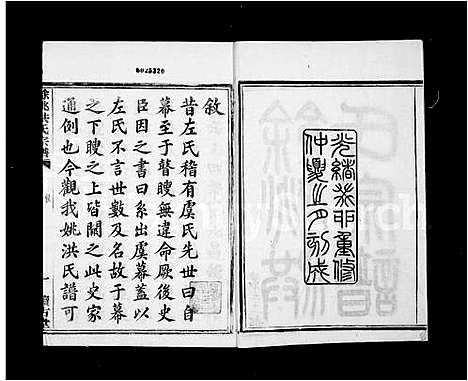 0025320
光緒辛卯重修
仲夏之月刻成
敘
昔左氏稱有虞氏先世曰自
幕至于瞽瞍無違命厥後史
臣因之書曰系出虞幕蓋以
左氏不言世數及名故于幕
之下瞍之上皆闕之此史家
通例也今觀我姚洪氏譜可
餘姚洪氏宗譜
敘
一